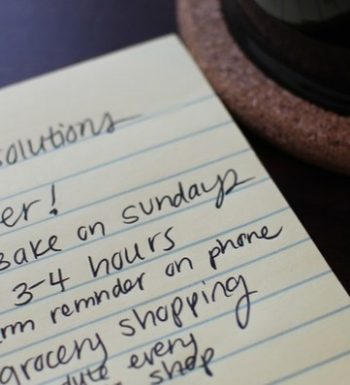 solutions
er!
bake on sundays
3-4 hours
rm remnder on phone
grocery shopping
dule every
shop